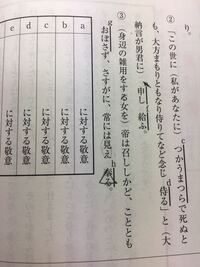 り。
②「この世に（私があなたに）つかうまつらで死ぬと
も、大方まもりともなり侍りてなど念じ侍る」と（大
納言が男君に）申し給ふ。
③（身辺の雑用をする女を）帝は召ししかど、こととも
おぼさず、さすがに、常には見え奉る。
c
d
g
h
a に対する敬意
b に対する敬意
c に対する敬意
d に対する敬意
e に対する敬意